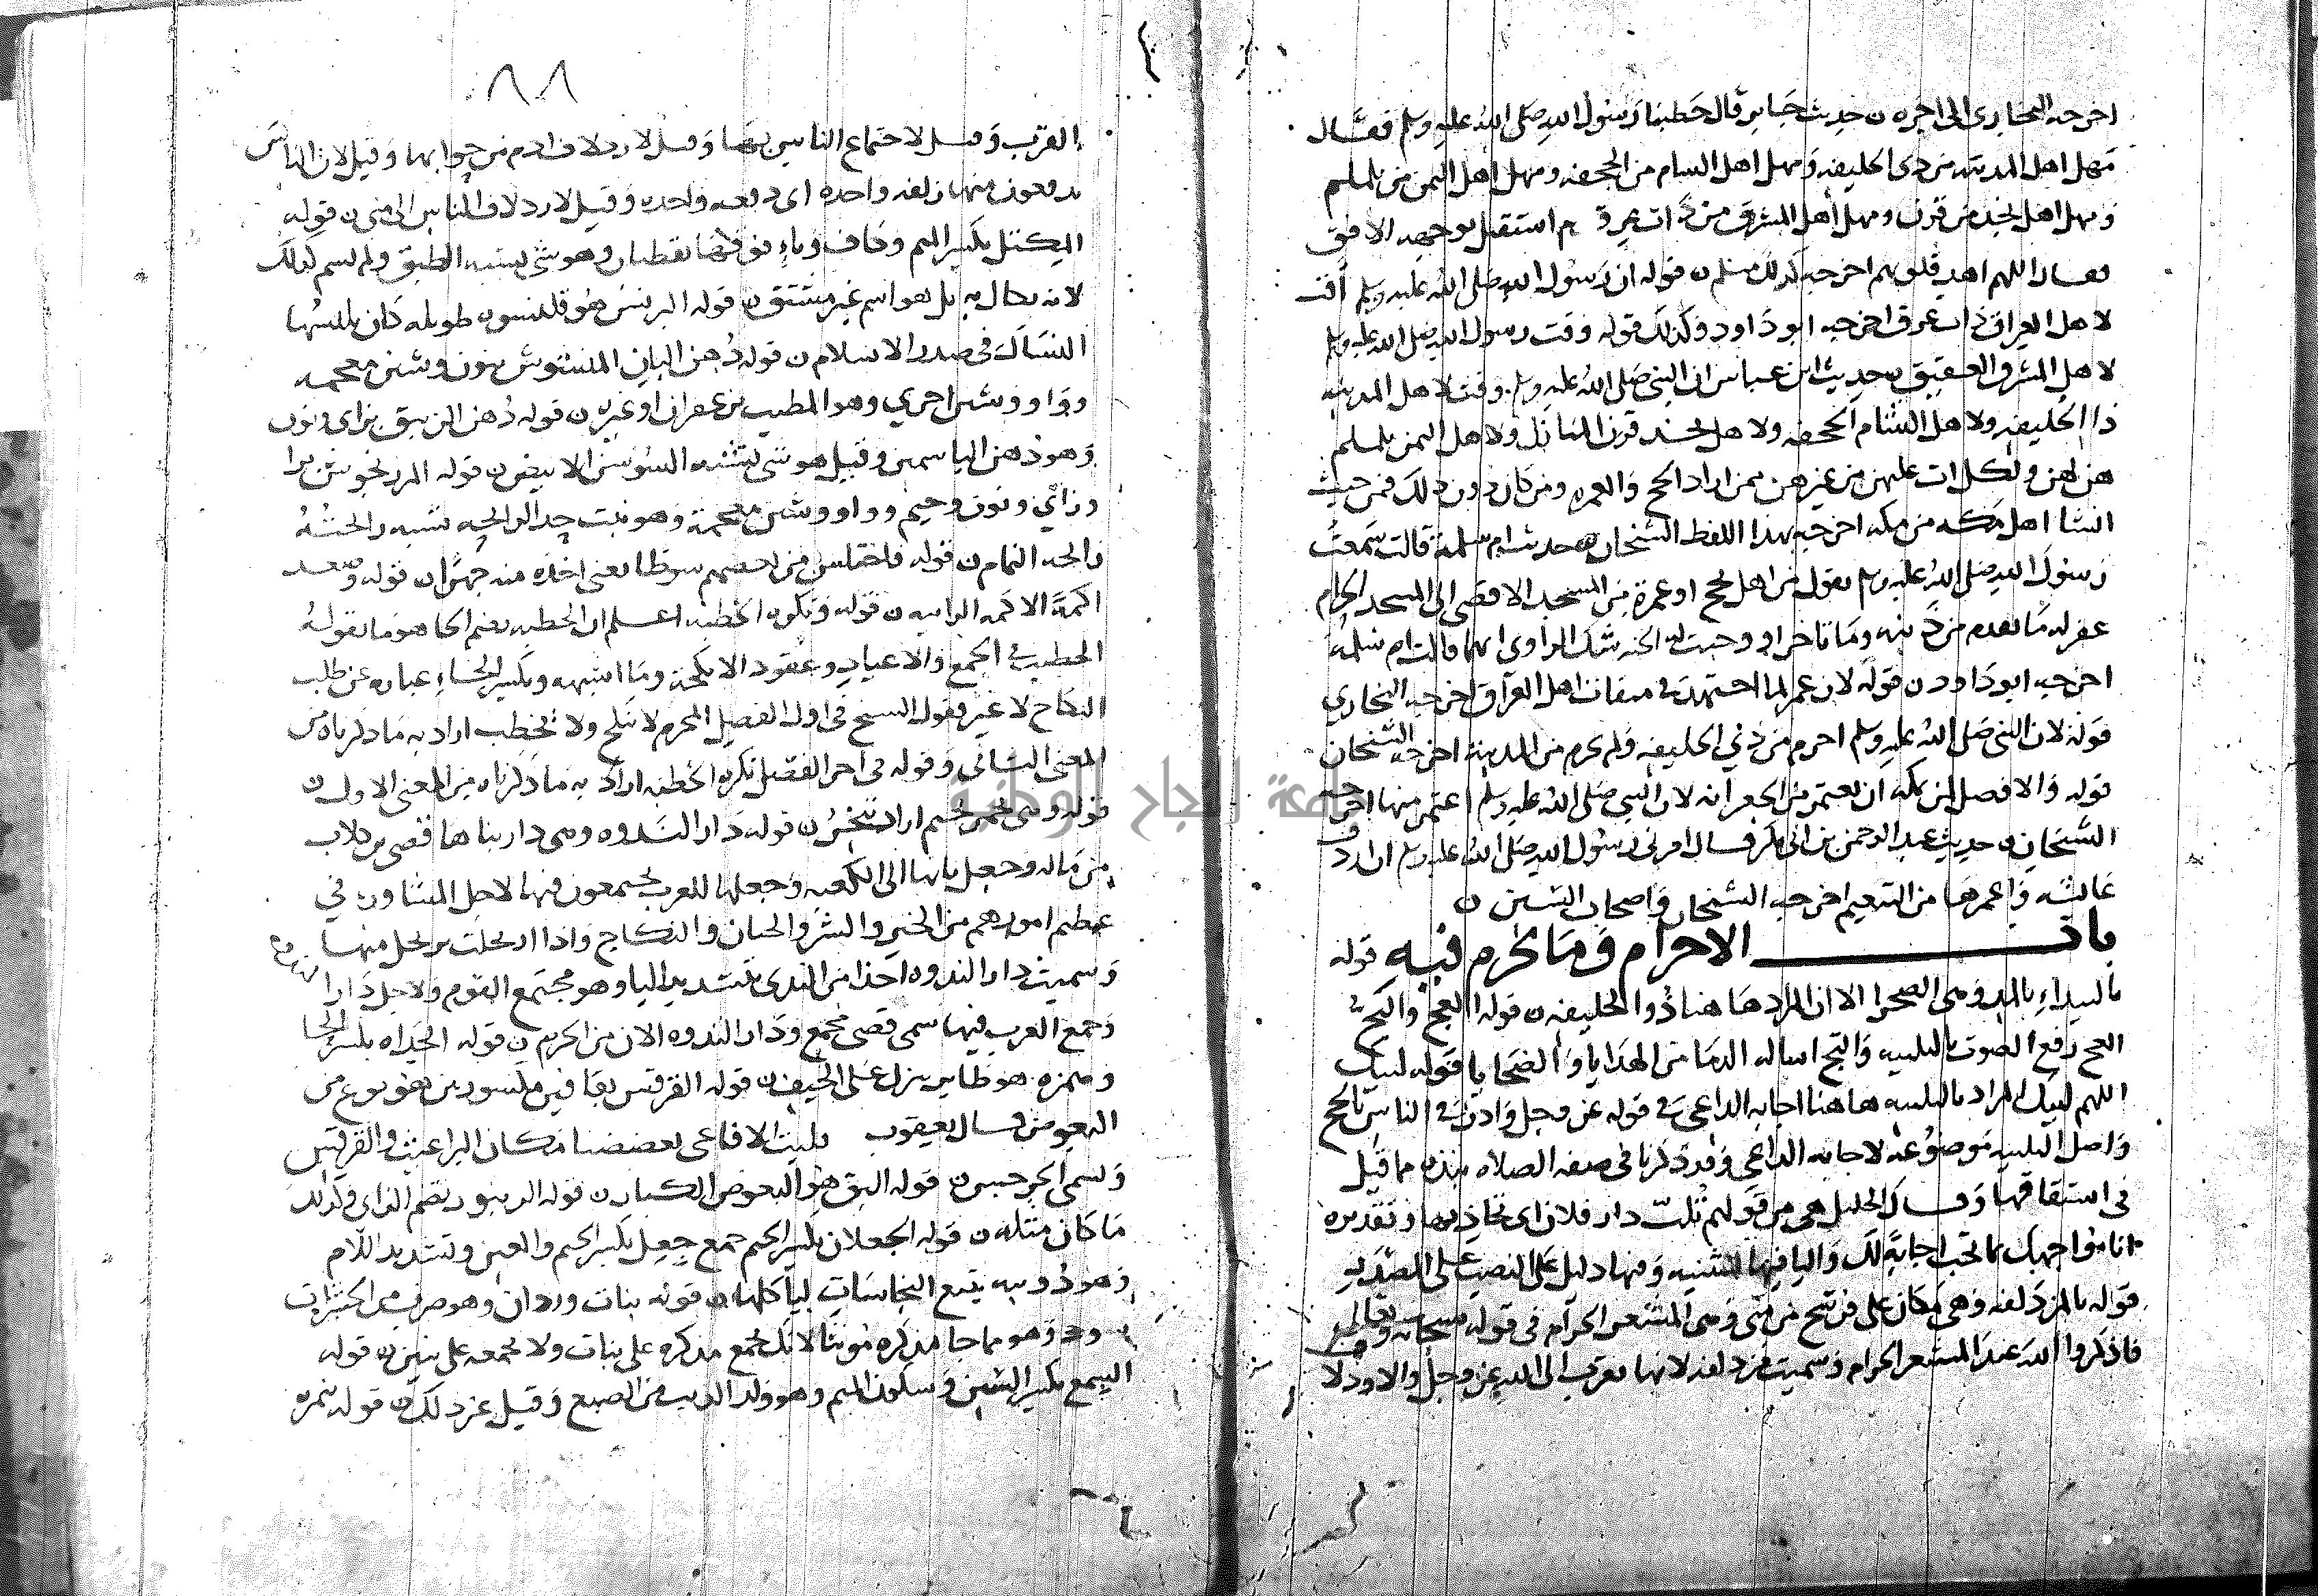 اخرجه البخاري الى اخره ن حديث جابر قال خطبنا رسول الله صلى الله عليه وسلم فقال
مهل اهل المدينه من ذي الحليفه ومهل اهل الشام من الجحفه ومهل اهل اليمن من يلملم
ومهل اهل نجد من قرن ومهل اهل المشرق من ذات عرق ثم استقبل بوجهه الافق
فقال اللهم اهد قلوبهم اخرجه كذلك مسلم ن قوله ان رسول الله صلى الله عليه وسلم اقت
لاهل العراق ذات عرق اخرجه ابو داود وكذلك قوله وقت رسول الله صلى الله عليه وسلم
لاهل المشرق العقيق ن حديث ابن عباس ان النبي صلى الله عليه وسلم وقت لاهل المدينه
ذا الحليفه ولاهل الشام الجحفه ولاهل نجد قرن المنازل ولاهل اليمن يلملم
هن لهن ولكل ات عليهن من غيرهن ممن اراد الحج والعمره ومن كان دون ذلك فمن حيث
انشا اهل مكه من مكه اخرجه بهذا اللفظ الشيخان ن حديث ام سلمة قالت سمعت
رسول الله صلى الله عليه وسلم يقول من اهل بحج او عمرة من المسجد الاقصى الى المسجد الحرام
غفر له ما تقدم من ذنبه وما تاخر او وجبت له الجنه شك الراوي ايهما قالت ام سلمه
اخرجه ابو داود ن قوله لان عمر لما اجتهد في ميقات اهل العراق اخرجه البخاري
قوله لان النبي صلى الله عليه وسلم احرم من ذي الحليفه ولم يحرم من المدينة اخرجه الشيخان
قوله والافضل لمن بمكه ان يعتمر من الجعرانه لان النبي صلى الله عليه وسلم اعتمر منها اخرجه
الشيخان ن حديث عبد الرحمن بن ابي بكر قال امرني رسول الله صلى الله عليه وسلم ان اردف
عائشه واعمرها من التنعيم اخرجه الشيخان واصحاب السنن ن
باب الاحرام وما يحرم فيه قوله
بالبيداء بالمد وهي الصحرا الا ان المراد هاهنا ذو الحليفه ن قوله العج والثج
العج رفع الصوت بالتلبيه والثج اساله الدما من الهدايا والضحايا قوله لبيك
اللهم لبيك المراد بالتلبيه هاهنا اجابه الداعي في قوله عز وجل واذن في الناس بالحج
واصل التلبيه موضوعه لاجابه الداعي وقد ذكرنا في صفه الصلاه نبذه مما قيل
في اشتقاقها وقال الخليل هي من قولهم ثلت دار فلان اي تحاذيها وتقديره
انا مواجهك بما تحب اجابة لك واليا فيها للتثنيه وفيها دليل على النصب على المصدريه
قوله بالمزدلفه وهي مكان على فرسخ من منى وهي المشعر الحرام في قوله سبحانه وتعالى
فاذكروا الله عند المشعر الحرام وسميت مزدلفه لانها تقرب الى الله عز وجل والازدلا
القرب وقيل لاجتماع الناس بها وقيل لازدلاف ادم من حوا بها وقيل لان الناس
يدفعون منها زلفه واحده اي دفعه واحده وقيل لازدلاف الناس الى منى ن قوله
المكتل بكسر الميم وكاف وتاء فوقها نقطتان وهو شي يشبه الطبق ولم يسم كذلك
لانه يكال به بل هو اسم غير مشتق ن قوله البرنس هو قلنسوه طويله كان يلبسها
النساك في صدر الاسلام ن قوله دهن البان المنشوش بنون وشين معجمه
وواو وشين اخرى وهو المطيب بزعفران او غيره ن قوله دهن الزنبق بزاي ونون
وهو دهن الياسمين وقيل هو شي يشبه السوسن الابيض ن قوله المرزنجوش برا
وزاي ونون وجيم وواو وشين معجمة وهو نبت جيد الرايحه تشبه رائحته
رائحه النمام ن قوله فاختلس من احدهم سوطا يعني اخذه منه جهرا ن قوله وصعد
اكمة الاكمه الرابيه ن قوله وتكره الخطبه اعلم ان الخطبه بضم الخا هو ما يقوله
الخطيب في الجمع والاعياد وعقود الانكحة وما اشبهه وبكسر الخاء عباره عن طلب
النكاح لا غير وقول الشيخ في اول الفصل المحرم لا ينكح ولا يخطب اراد به ما ذكرناه من
المعنى الثاني وقوله في اخر الفصل تكره الخطبه اراد به ما ذكرناه من المعنى الاول ن
قوله وهي تجمر تجمر اراد تتبخر ن قوله دار الندوه وهي دار بناها قصي بن كلاب
من ماله وجعل بابها الى الكعبه وجعلها للعرب يجتمعون فيها لاجل المشاوره في
عظيم امورهم من الخير والشر والختان والنكاح واذا ارتحلت يرتحل منها
وسميت دار الندوه اخذا من الندى بتشديد اليا وهو مجتمع القوم ولاجل دارا
وجمع العرب فيها سمي قصي مجمع ودار الندوه الان من الحرم ن قوله الحداه بكسر الحا
وهمزه هو طاير ينزل على الجيف ن قوله القرقس بقافين مكسورتين هو نوع من
البعوض قال يعقوب فليت الافاعي يعضضننا مكان البراغيث والقرقس
وتسمى الجرجس ن قوله البق هو البعوض الكبار ن قوله الزنبور بضم الزاي وكذلك
ما كان مثله ن قوله الجعلان بكسر الجيم جمع جعل بكسر الجيم والعين وتشديد اللام
وهو دويبه يتبع النجاسات لياكلها ن قوله بنات وردان وهو ضرب من الحشرات
وهو مما جا مذكره مونثا لانك تجمع مذكره على بنات ولا تجمعه على بنين ن قوله
السمع بكسر السين وسكون الميم وهو ولد الذيب من الضبع وقيل غير ذلك ن قوله نمره
جامعة النجاح الوطنية